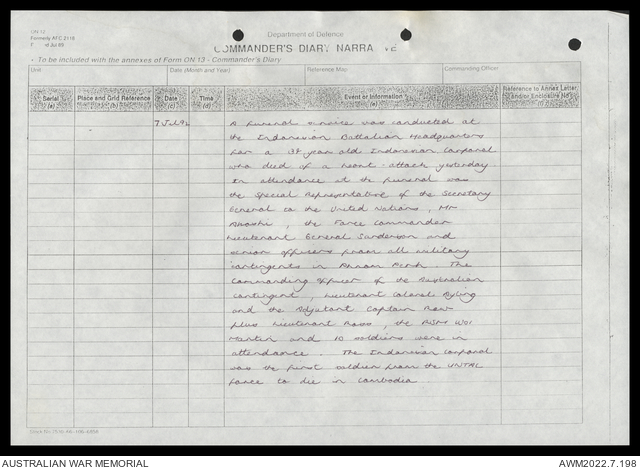 ON 13
Formerly AFC 2118
Jul 85
Department of Defence
COMMANDER'S DIARY NARRA VE
• To be included with the annexes of Form ON 13 - Commander's Diary
Unit
Date (Month and Year)
Reference Map
Commanding Officer
Serial
(a)
Place and Grid Reference
(b)
Date
(c)
Time
(d)
Event or Information
(e)
Reference to Annex Letter
and/or Enclosure No
(f)
7 Jul 92
A funeral service was conducted at
the Indonesian Battalion Headquarters
for a 38 year old Indonesian Corporal
who died of a heart-attack yesterday
In attendance at the funeral was
the Special Representative of the Secretary
General to the United Nations, Mr
Akashi, the Force Commander
Lieutenant General Sanderson and
senior officers from all military
contingents in Phnom Penh. The
Commanding Officer of the Australian
contingent, Lieutenant Colonel
and the Adjutant Captain
plus Lieutenant Ross, the RSM WO1
Martin and 10 soldiers were in
attendance. The Indonesian corporal
was the first soldier from the UNTAC
force to die in Cambodia
AUSTRALIAN WAR MEMORIAL
AWM2022.7.198